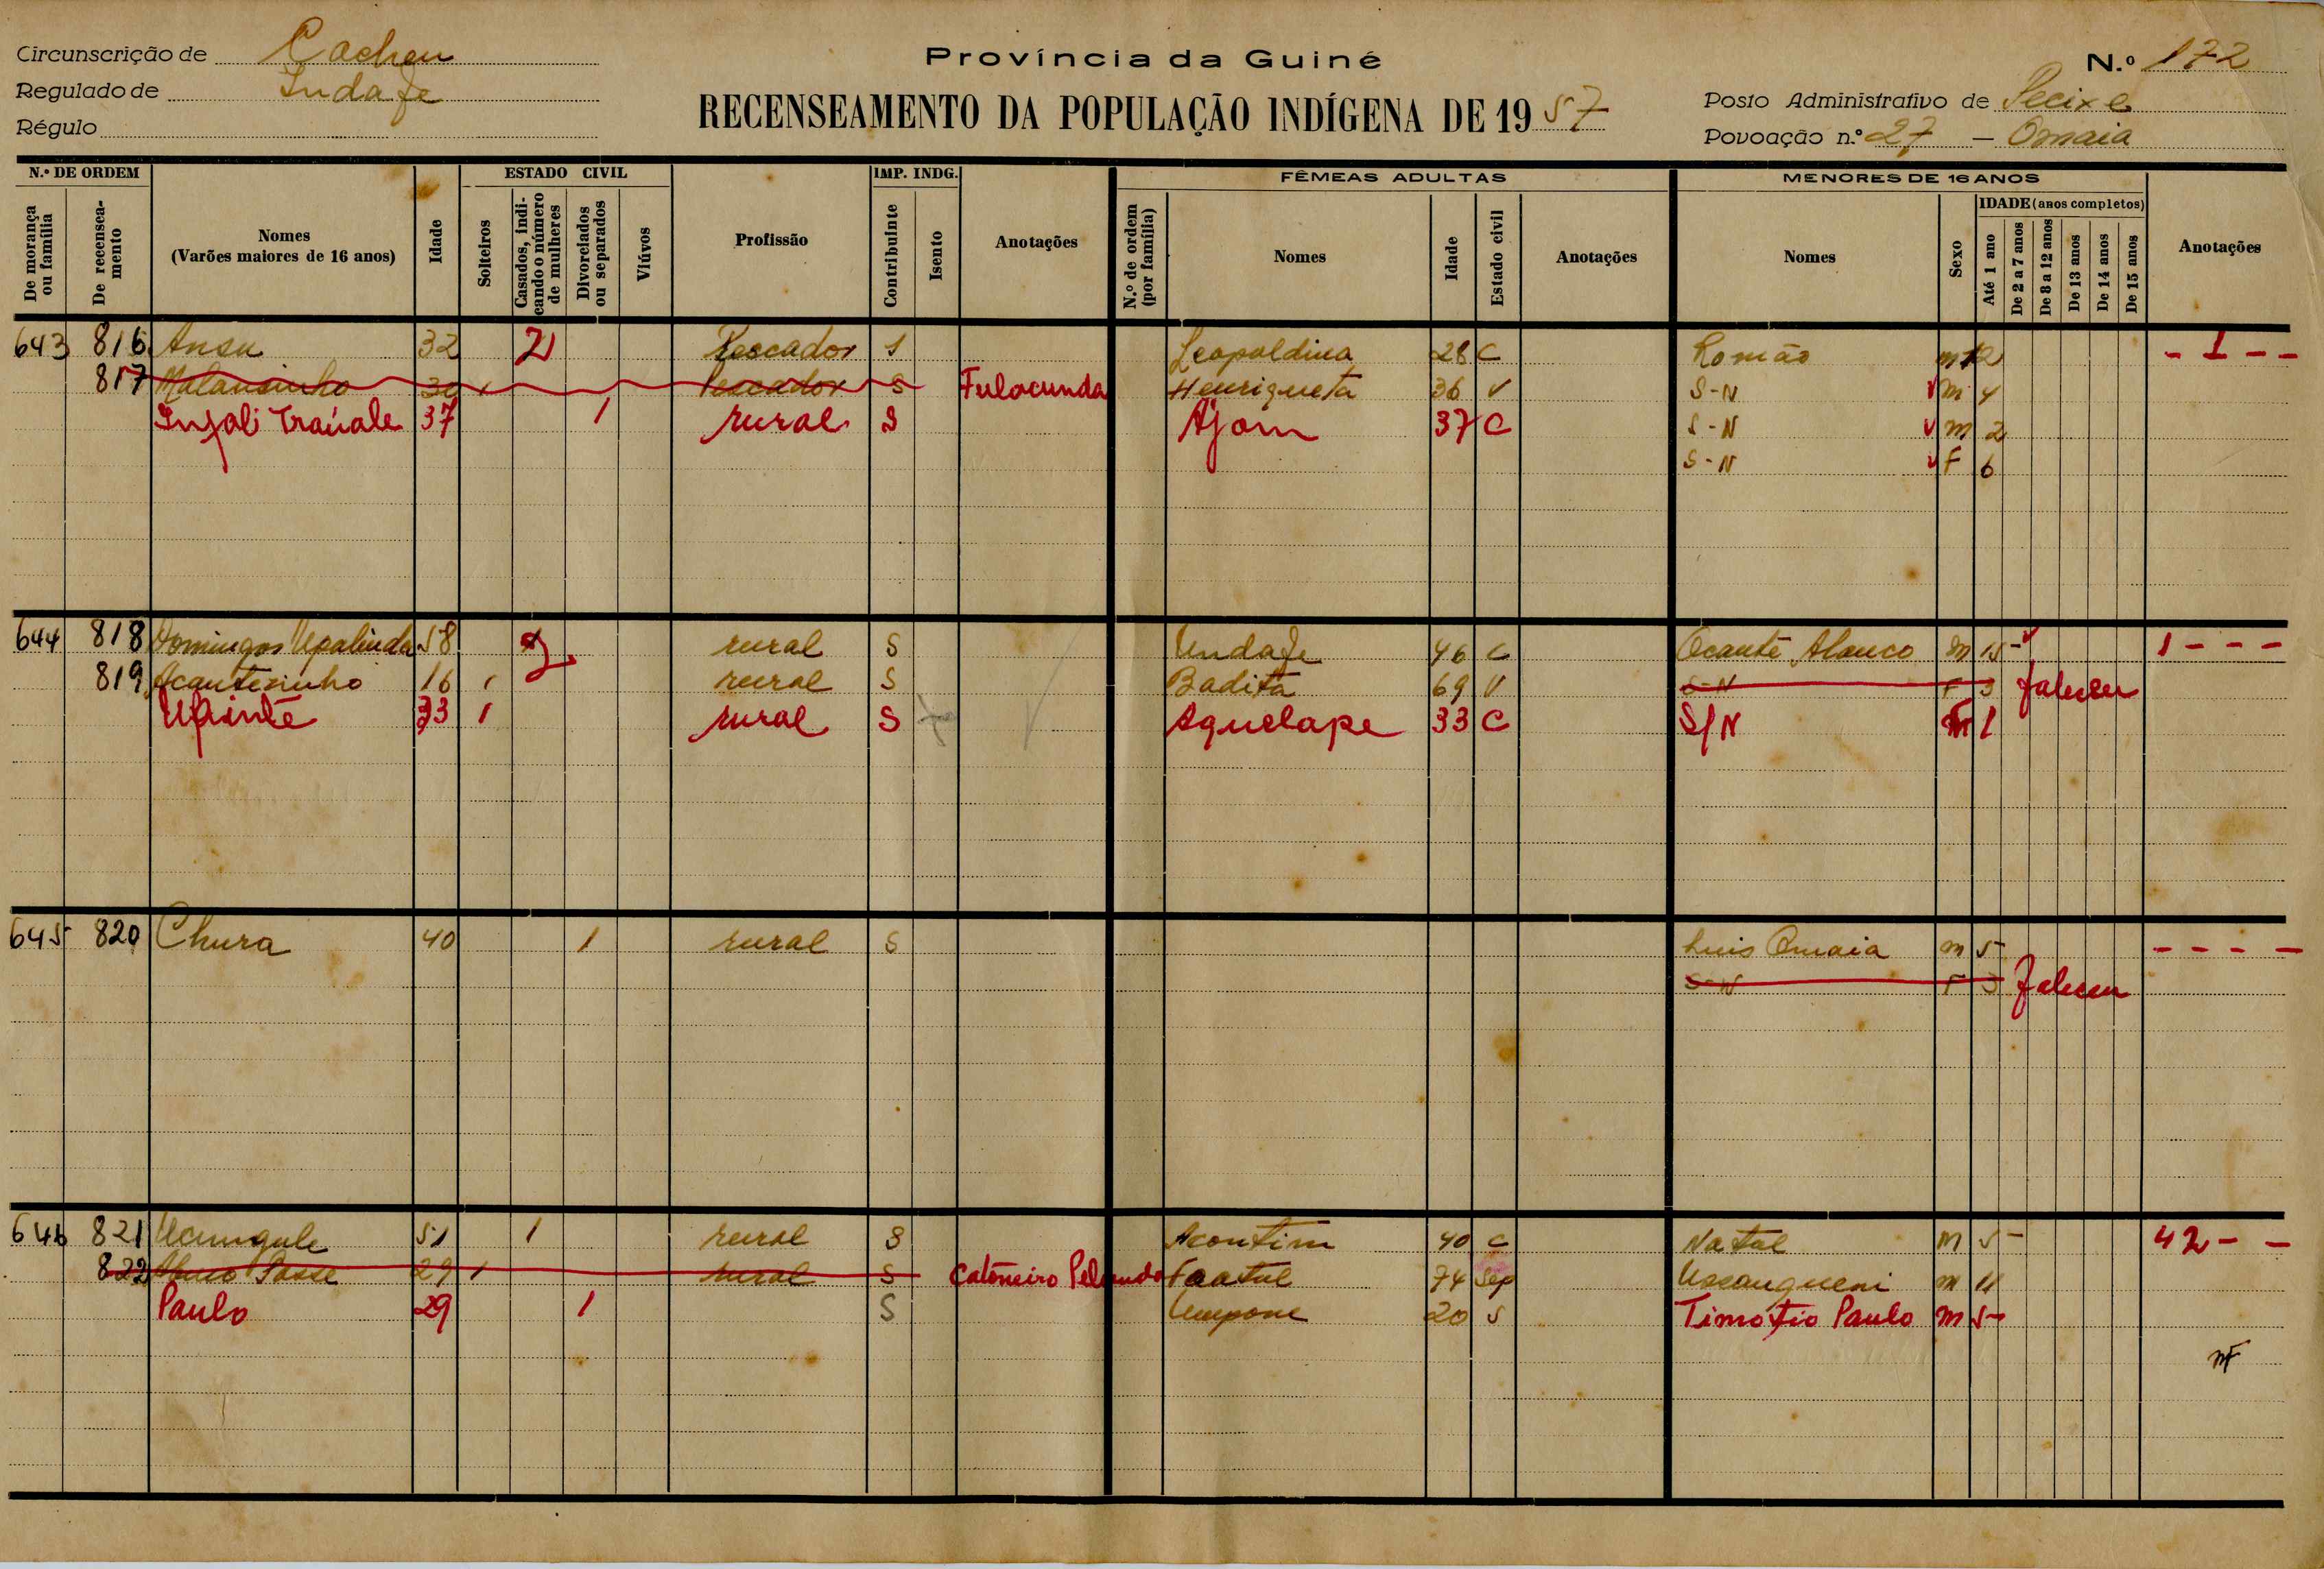 Circunscrição de Cacheu
Regulado de Indafe
Régulo
Província da Guiné
RECENSEAMENTO DA POPULAÇÃO INDÍGENA DE 1957
N.º 172
Posto Administrativo de Pecixe
Povoação n.º 27 — Omaia
N.º DE ORDEM
De morança ou família
De recenseamento
Nomes
(Varões maiores de 16 anos)
Idade
ESTADO CIVIL
Solteiros
Casados, indicando o número de mulheres
Divorciados ou separados
Viúvos
Profissão
IMP. INDG.
Contribuinte
Isento
Anotações
FÊMEAS ADULTAS
N.º de ordem (por família)
Nomes
Idade
Estado civil
Anotações
MENORES DE 16 ANOS
Nomes
Sexo
IDADE (anos completos)
Até 1 ano
De 2 a 7 anos
De 8 a 12 anos
De 13 anos
De 14 anos
De 15 anos
Anotações
643 816 Ansu 32 2 Pescador S Leopoldina 28 C Romão m 12 - 1 - -
817 Malansinho 30 1 Pescador S Fulacunda Henriqueta 36 V S-N m 4
Infali Traúale 37 1 rural S Ajom 37 C S-N m 2
S-N F 6
644 818 Domingos Upalinda 58 2 rural S Undafe 46 C Ocante Alanco m 15 1 - - -
819 Acantesinho 16 1 rural S Badita 69 V S-N F 3 faleceu
Upinte 33 1 rural S Aquelape 33 C S/N 1
645 820 Chura 40 1 rural S Luis Omaia m 5 - - - -
S-N F 3 faleceu
646 821 51 1 rural S Acontim 40 C Natal m 5 42 - -
822 29 1 rural S Catoneiro Pelundo Faatul 74 Sep m 11
Paulo 29 1 S Umpone 20 S Timotio Paulo m 5